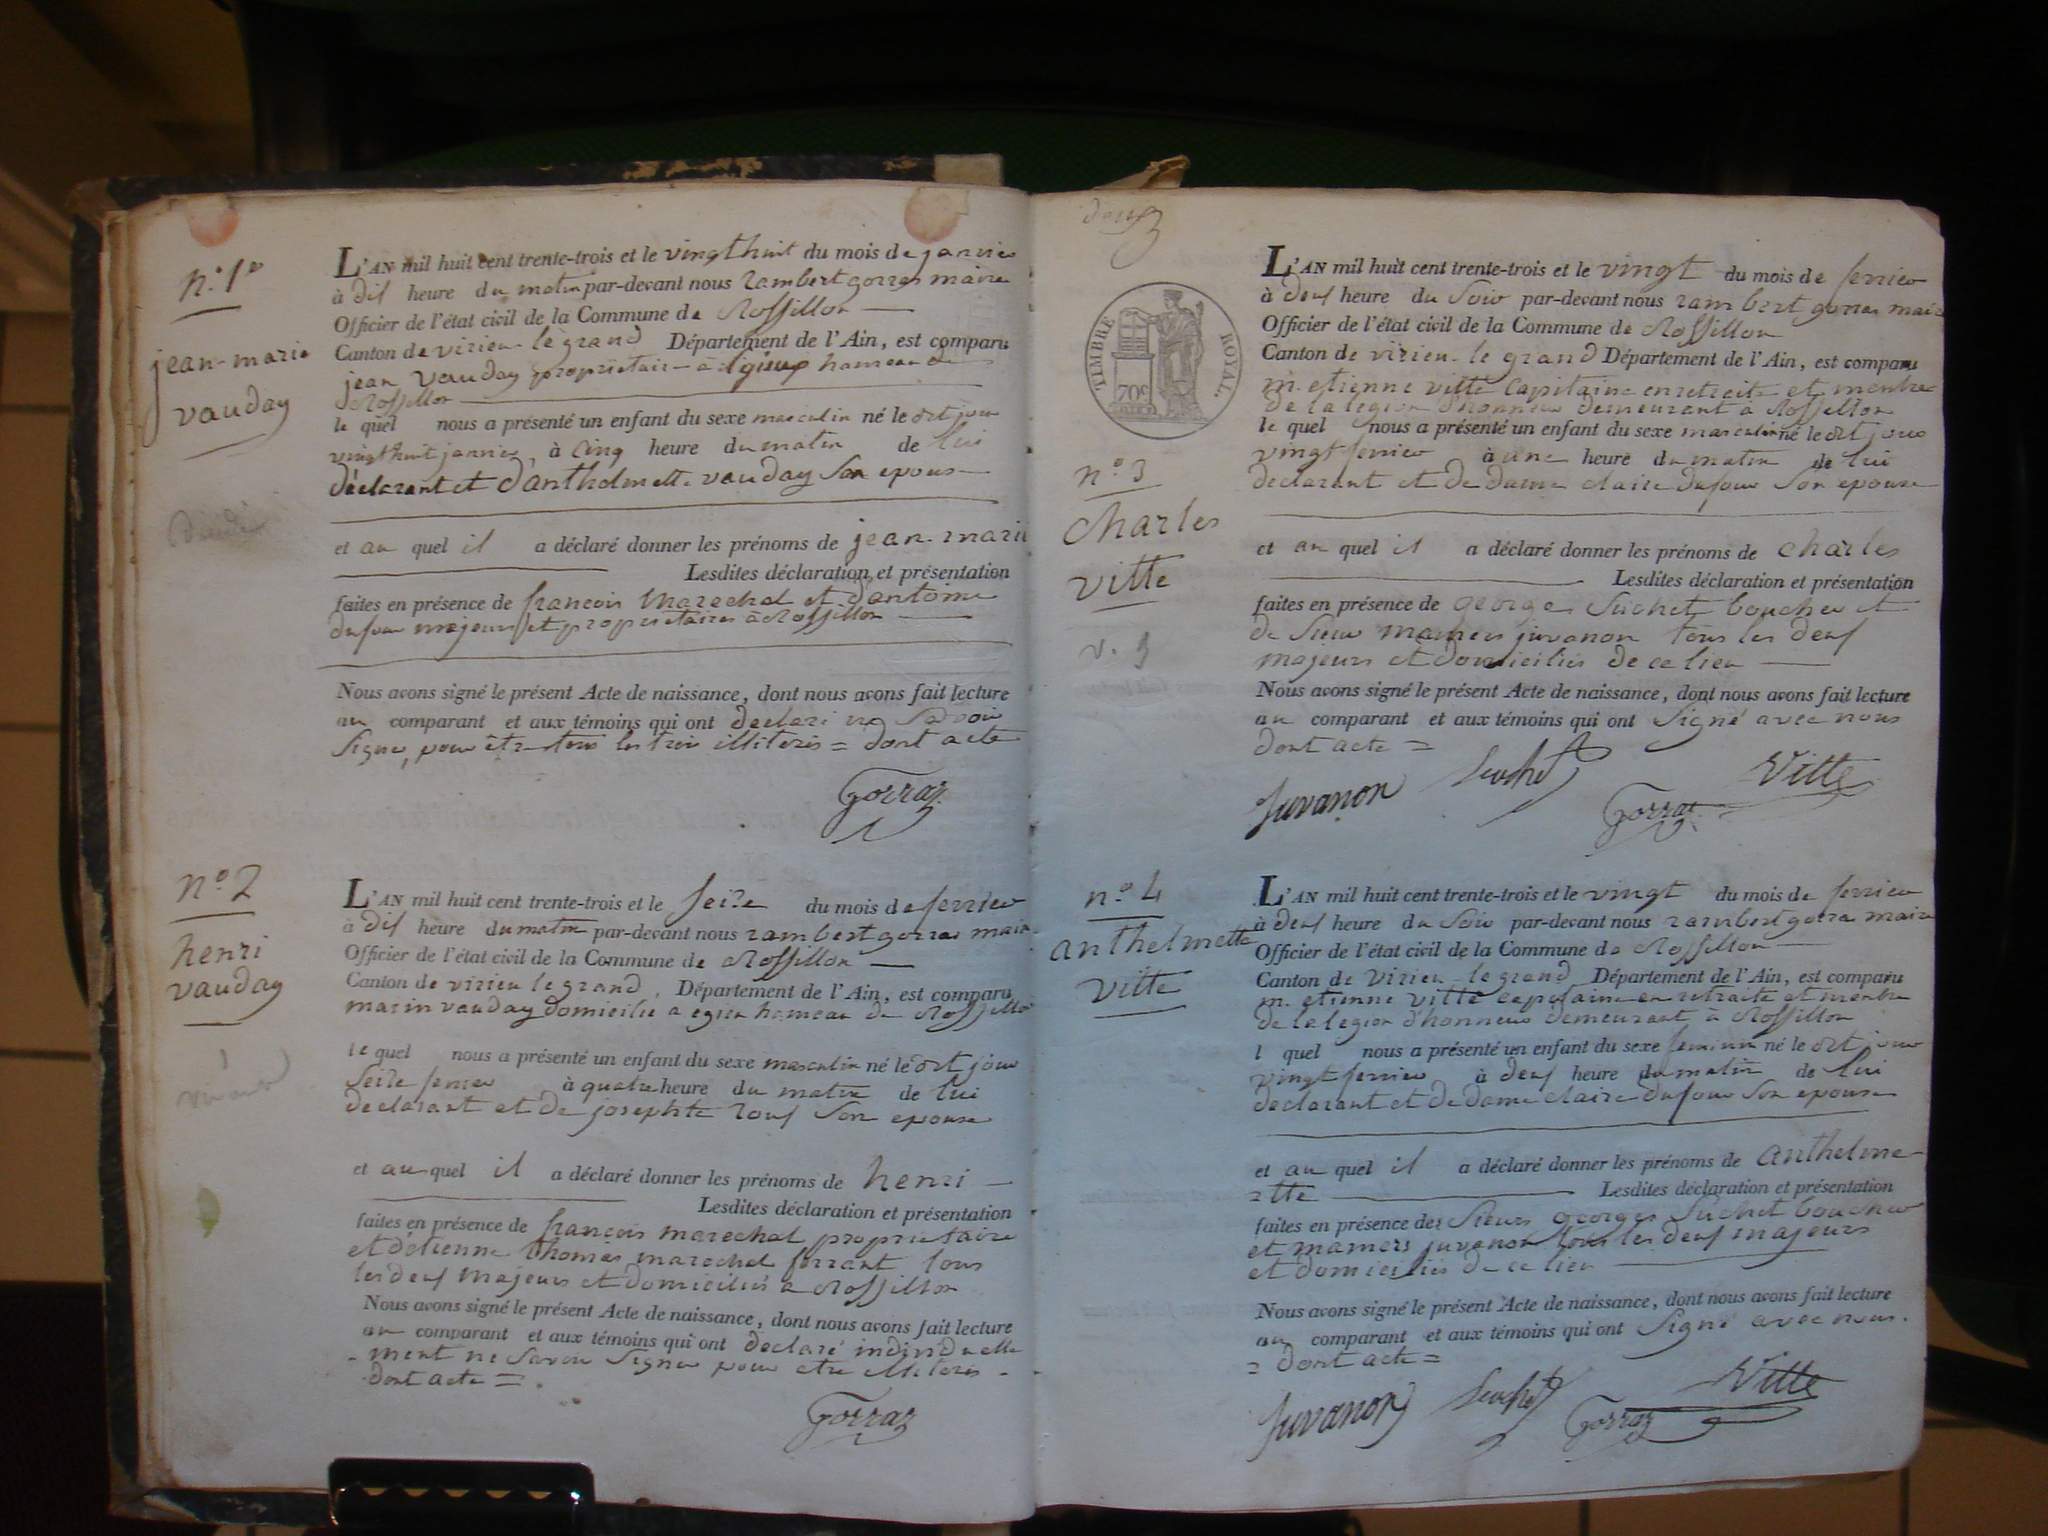 n.º 1er
jean-marie
vauday
L'AN mil huit cent trente-trois et le vingt huit du mois de janvier
à dix heure du matin par-devant nous rambert gorras maire
Officier de l'état civil de la Commune de Rossillon
Canton de virieu le grand Département de l'Ain, est comparu
jean vauday propriétaire à égieux hameau de
Rossillon
le quel nous a présenté un enfant du sexe masculin né le dit jour
vingt huit janvier à cinq heure du matin de lui
déclarant et d'anthelmette vauday son epouse
et au quel il a déclaré donner les prénoms de jean-marie
Lesdites déclaration et présentation
faites en présence de francois marechal et d'antoine
dufour majeurs et proprietaires à Rossillon
Nous avons signé le présent Acte de naissance, dont nous avons fait lecture
au comparant et aux témoins qui ont declaré ne Savoir
Signer pour être tous les trois illiterés = dont acte
Gorraz
nº 2
henri
vauday
L'AN mil huit cent trente-trois et le seize du mois de fevrier
à dix heure du matin par-devant nous rambert gorras maire
Officier de l'état civil de la Commune de Rossillon
Canton de virieu le grand Département de l'Ain, est comparu
marin vauday domicilié a egieu hameau de Rossillon
le quel nous a présenté un enfant du sexe masculin né le dit jour
seize fevrier à quatre heure du matin de lui
declarant et de josephte roux son epouse
et au quel il a déclaré donner les prénoms de henri
Lesdites déclaration et présentation
faites en présence de françois marechal proprietaire
et d'étienne thomas marechal ferrant tous
les deux majeurs et domiciliés a Rossillon
Nous avons signé le présent Acte de naissance, dont nous avons fait lecture
au comparant et aux témoins qui ont declaré individuelle
-ment ne Savoir Signer pour etre illiterés -
dont acte =
Gorraz
deux
TIMBRE ROYAL
70c
nº 3
Charles
vitte
v. 3
L'AN mil huit cent trente-trois et le vingt du mois de fevrier
à deux heure du Soir par-devant nous rambert gorras maire
Officier de l'état civil de la Commune de Rossillon
Canton de virieu-le grand Département de l'Ain, est comparu
m. etienne vitte Capitaine en retraite et menbre
de la legion d'honneur demeurant à Rossillon
le quel nous a présenté un enfant du sexe masculin né le dit jour
vingt fevrier à une heure du matin de lui
declarant et de dame claire dufour son epouse
et au quel il a déclaré donner les prénoms de charles
Lesdites déclaration et présentation
faites en présence de george Suchet boucher et
de Sieur mamers juvanon tous les deux
majeurs et domiciliés de ce lieu
Nous avons signé le présent Acte de naissance, dont nous avons fait lecture
au comparant et aux témoins qui ont Signé avec nous
dont acte =
Juvanon Suchet Gorraz Vitte
nº 4
anthelmette
vitte
L'AN mil huit cent trente-trois et le vingt du mois de fevrier
à deux heure du Soir par-devant nous rambert gorras maire
Officier de l'état civil de la Commune de Rossillon
Canton de virieu-le grand Département de l'Ain, est comparu
m. etienne vitte capitaine en retraite et menbre
de la legion d'honneur demeurant à Rossillon
l quel nous a présenté un enfant du sexe feminin né le dit jour
vingt fevrier à deux heure du matin de lui
declarant et de dame claire dufour son epouse
et au quel il a déclaré donner les prénoms de anthelme-
ette Lesdites déclaration et présentation
faites en présence des Sieurs georges Suchet boucher
et mamers juvanon tous les deux majeurs
et domiciliés de ce lieu
Nous avons signé le présent Acte de naissance, dont nous avons fait lecture
au comparant et aux témoins qui ont Signé avec nous.
= dont acte =
Juvanon Suchet Gorraz Vitte